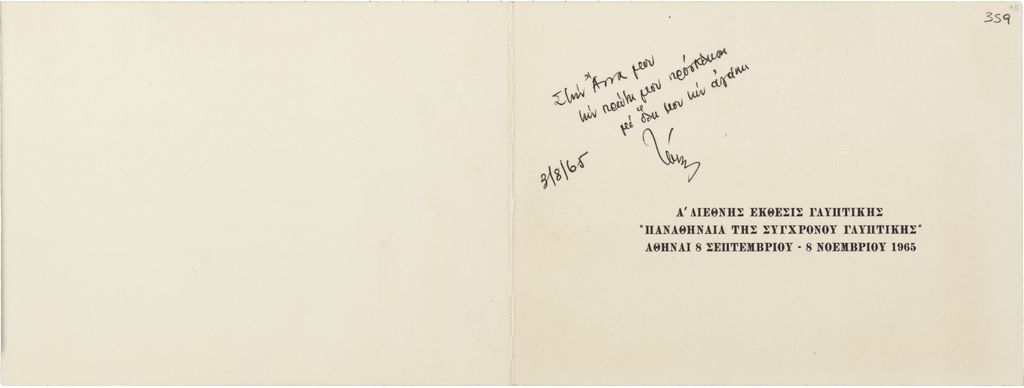 359
Στήν Ἄννα μου
τήν πρώτη μου πρόσκληση
μέ ὅλη μου τήν ἀγάπη
3/8/65
Α' ΔΙΕΘΝΗΣ ΕΚΘΕΣΙΣ ΓΛΥΠΤΙΚΗΣ
"ΠΑΝΑΘΗΝΑΙΑ ΤΗΣ ΣΥΓΧΡΟΝΟΥ ΓΛΥΠΤΙΚΗΣ"
ΑΘΗΝΑΙ 8 ΣΕΠΤΕΜΒΡΙΟΥ - 8 ΝΟΕΜΒΡΙΟΥ 1965